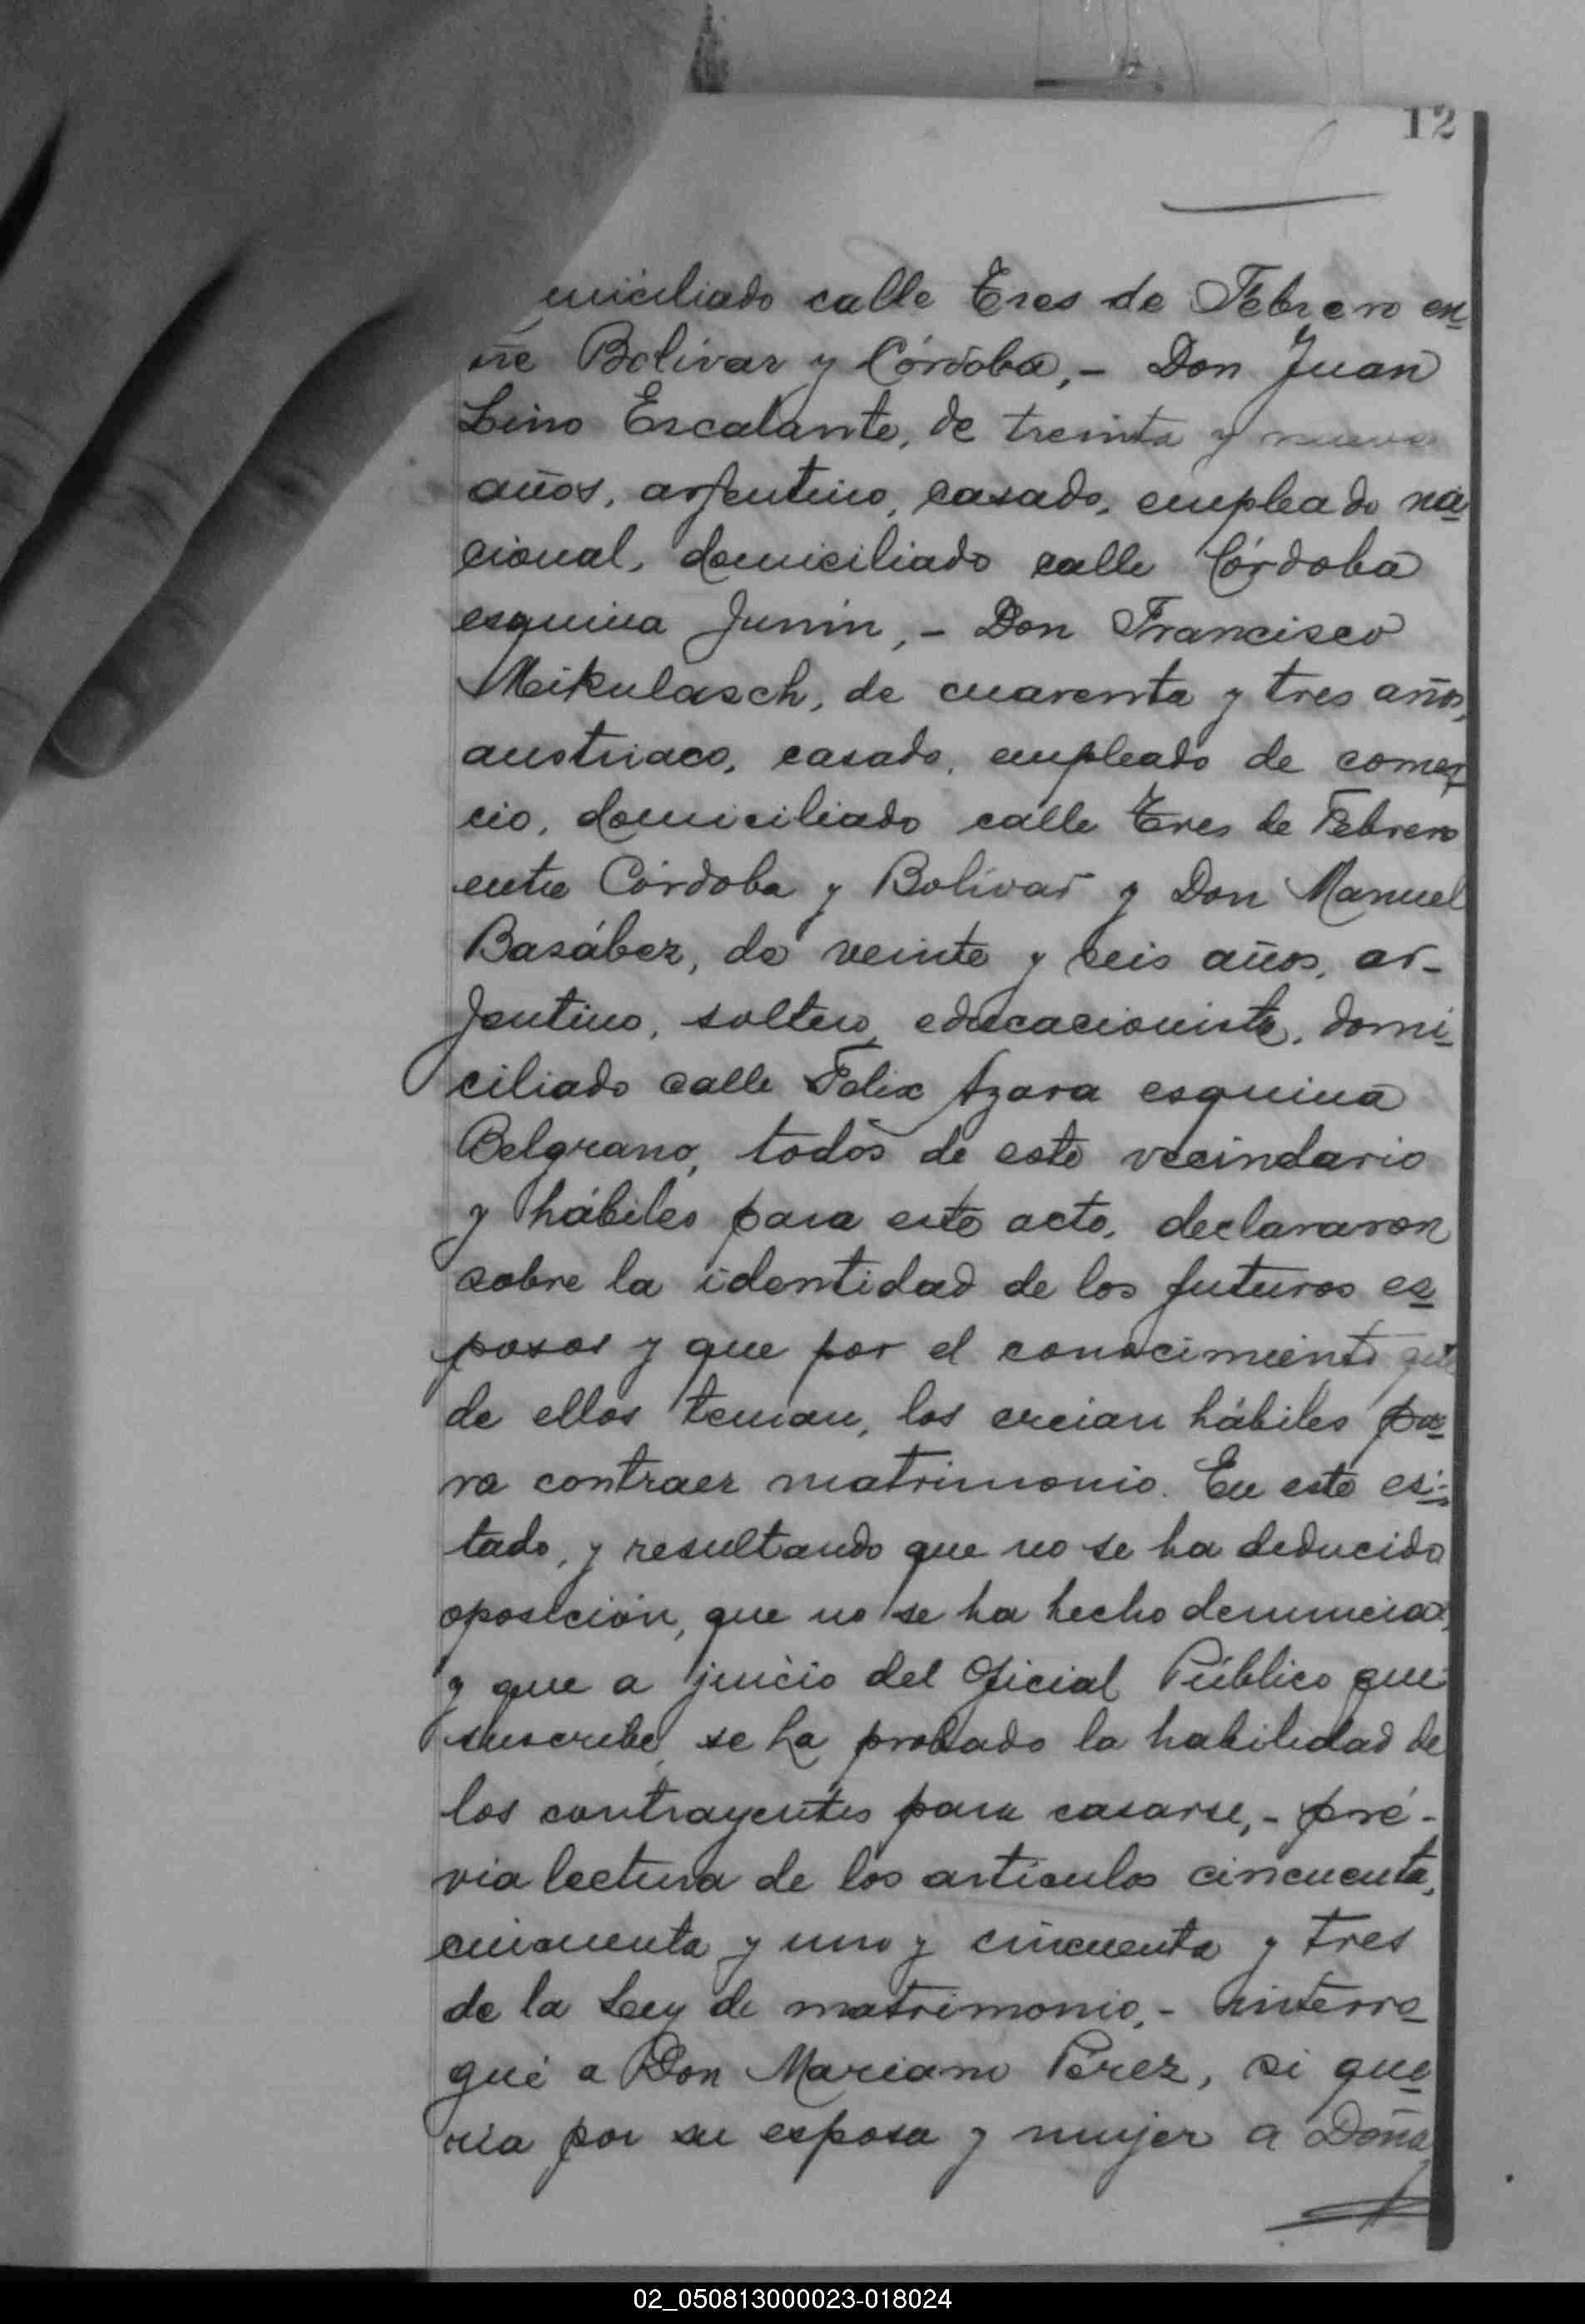 12
miciliado calle Tres de Febrero en
tre Bolívar y Córdoba,- Don Juan
Lino Escalante, de treinta y nueve
años, arjentino, casado, empleado na
cional, domiciliado calle Córdoba
esquina Junín,- Don Francisco
Mikulasch, de cuarenta y tres años,
austriaco, casado, empleado de comer
cio, domiciliado calle Tres de Febrero
entre Córdoba y Bolívar y Don Manuel
Basábez, de veinte y seis años, ar-
jentino, soltero, educacionista, domi
ciliado calle Felix Azara esquina
Belgrano, todos de este vecindario
y hábiles para este acto, declararon
sobre la identidad de los futuros es
posos y que por el conocimiento que
de ellos tenian, los creian hábiles pa
ra contraer matrimonio. En este es-
tado, y resultando que no se ha deducido
oposición, que no se ha hecho denuncia,
y que a juicio del Oficial Público que
suscribe, se ha probado la habilidad de
los contrayentes para casarse,- pré-
via lectura de los artículos cincuenta,
cincuenta y uno y cincuenta y tres
de la Ley de matrimonio,- interro
gué a Don Mariano Pérez, si que
ria por su esposa y mujer a Doña
02_050813000023-018024